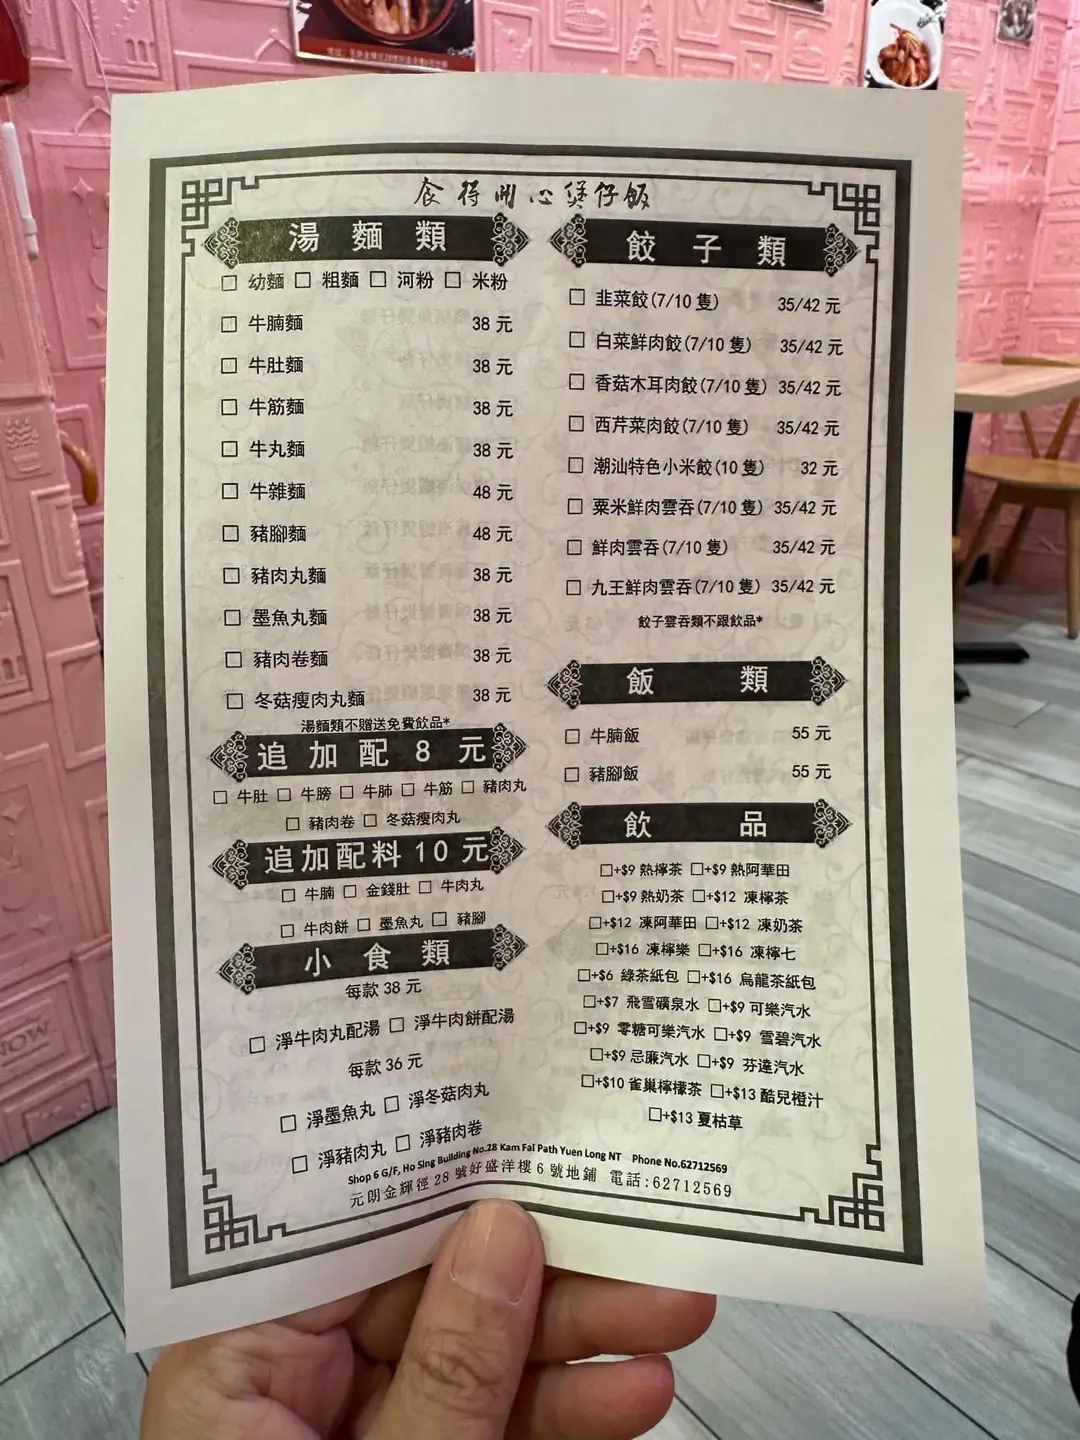 食得開心煲仔飯
湯麵類
□ 幼麵 □ 粗麵 □ 河粉 □ 米粉
□ 牛腩麵 38 元
□ 牛肚麵 38 元
□ 牛筋麵 38 元
□ 牛丸麵 38 元
□ 牛雜麵 48 元
□ 豬腳麵 48 元
□ 豬肉丸麵 38 元
□ 墨魚丸麵 38 元
□ 豬肉卷麵 38 元
□ 冬菇瘦肉丸麵 38 元
湯麵類不贈送免費飲品*
追加配 8 元
□ 牛肚 □ 牛膀 □ 牛肺 □ 牛筋 □ 豬肉丸
□ 豬肉卷 □ 冬菇瘦肉丸
追加配料 10 元
□ 牛腩 □ 金錢肚 □ 牛肉丸
□ 牛肉餅 □ 墨魚丸 □ 豬腳
小食類
每款 38 元
□ 淨牛肉丸配湯 □ 淨牛肉餅配湯
每款 36 元
□ 淨墨魚丸 □ 淨冬菇肉丸
□ 淨豬肉丸 □ 淨豬肉卷
餃子類
□ 韭菜餃(7/10 隻) 35/42 元
□ 白菜鮮肉餃(7/10 隻) 35/42 元
□ 香菇木耳肉餃(7/10 隻) 35/42 元
□ 西芹菜肉餃(7/10 隻) 35/42 元
□ 潮汕特色小米餃(10 隻) 32 元
□ 粟米鮮肉雲吞(7/10 隻) 35/42 元
□ 鮮肉雲吞(7/10 隻) 35/42 元
□ 九王鮮肉雲吞(7/10 隻) 35/42 元
餃子雲吞類不跟飲品*
飯類
□ 牛腩飯 55 元
□ 豬腳飯 55 元
飲品
□+$9 熱檸茶 □+$9 熱阿華田
□+$9 熱奶茶 □+$12 凍檸茶
□+$12 凍阿華田 □+$12 凍奶茶
□+$16 凍檸樂 □+$16 凍檸七
□+$6 綠茶紙包 □+$16 烏龍茶紙包
□+$7 飛雪礦泉水 □+$9 可樂汽水
□+$9 零糖可樂汽水 □+$9 雪碧汽水
□+$9 忌廉汽水 □+$9 芬達汽水
□+$10 雀巢檸檬茶 □+$13 酷兒橙汁
□+$13 夏枯草
Shop 6 G/F, Ho Sing Building No.28 Kam Fai Path Yuen Long NT Phone No.62712569
元朗金輝徑 28 號好盛洋樓 6 號地鋪 電話:62712569